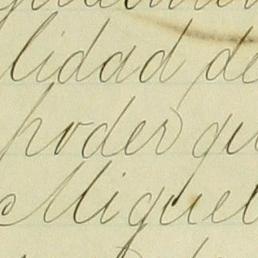 lidad de
poder qu
Miguel